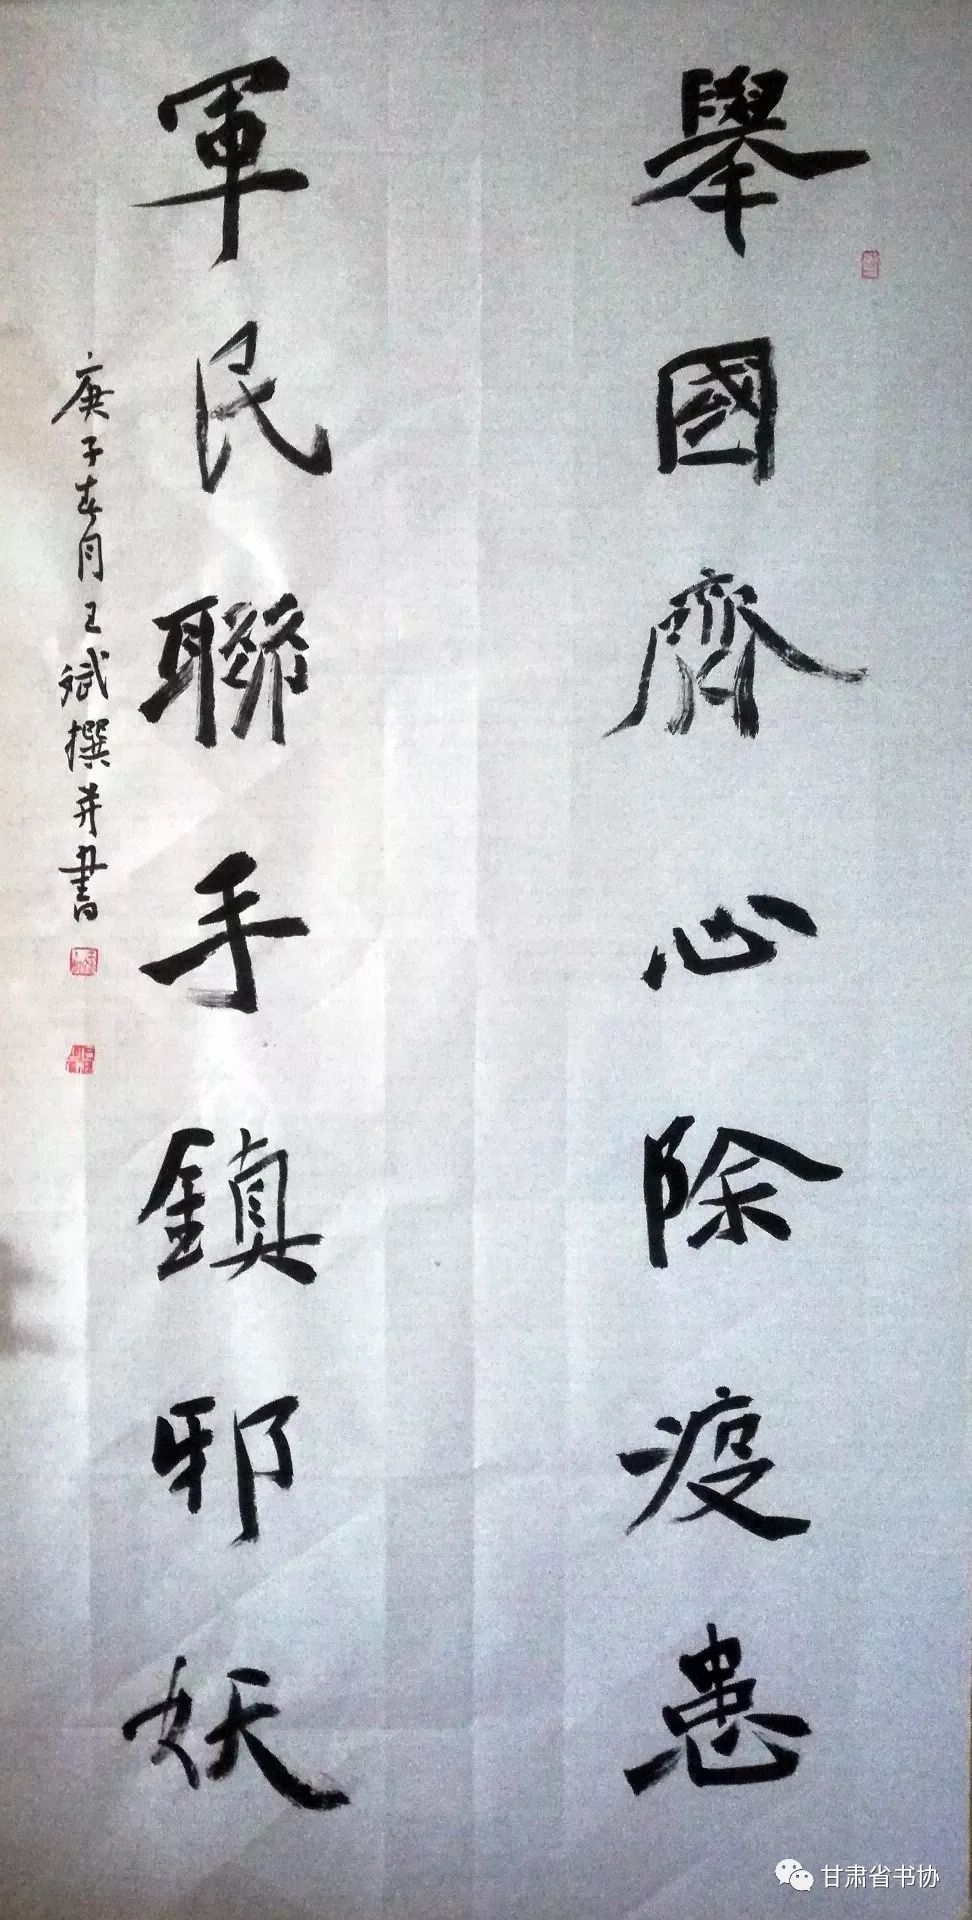 舉國齊心除疫患
軍民聯手鎮邪妖
庚子春月王斌撰并書
甘肃省书协